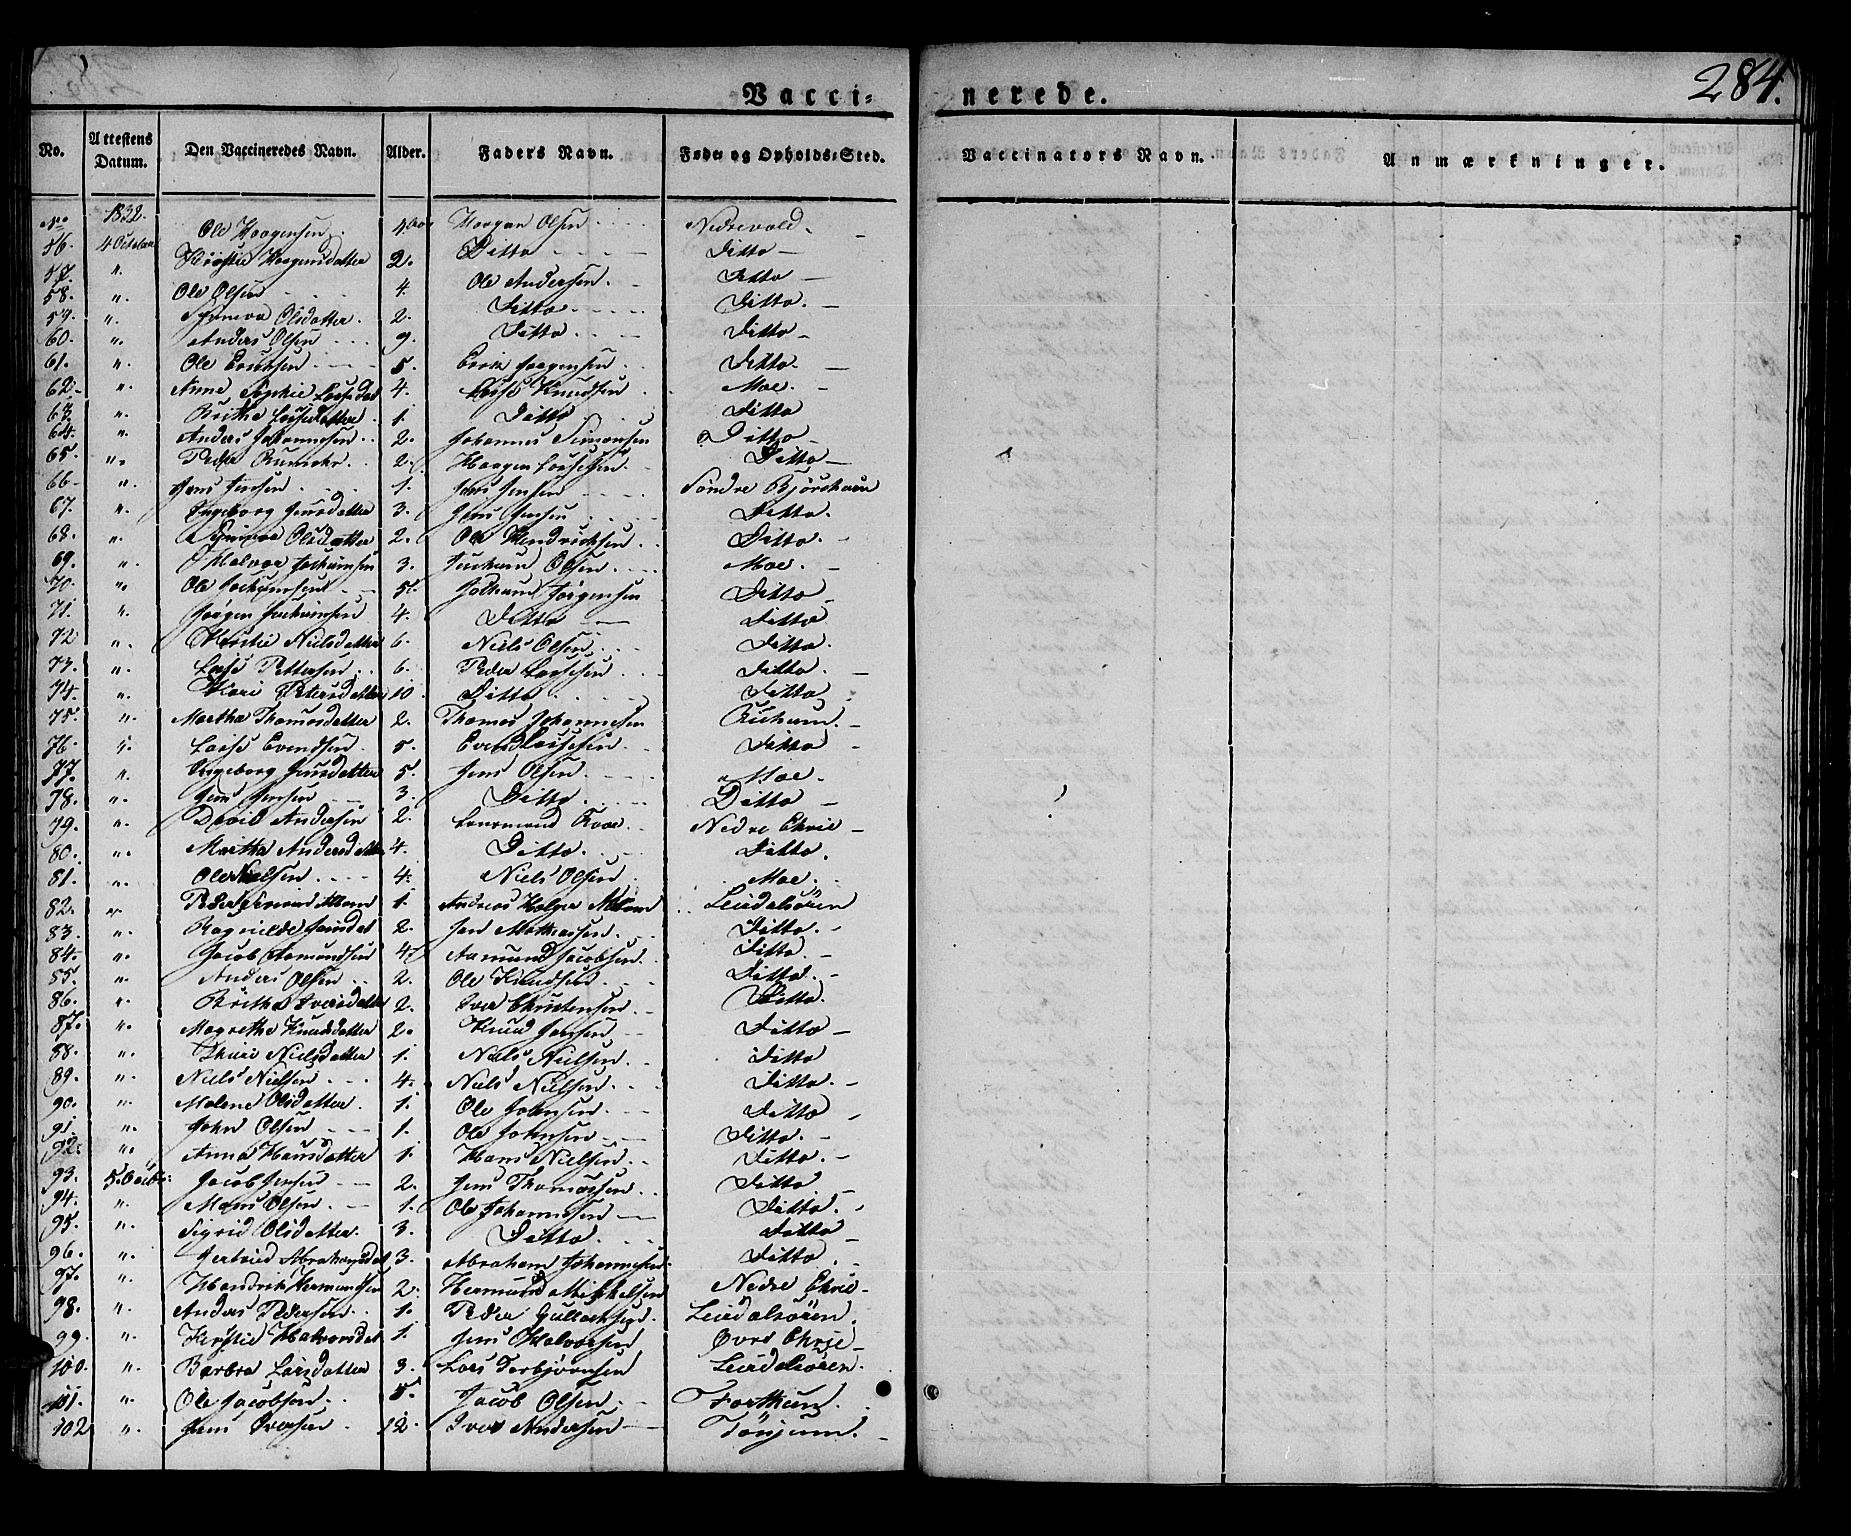 284.
Vacci- nerede.
No. Attestens Datum. Den Vaccineredes Navn. Alder. Faders Navn. Føde- og Opholds-Sted. Vaccinators Navn. Anmærkninger.
No. 1832.
56. 4 October Ole Haagensen 4 Haagen Olsen Nedrevold
57. " Kirstie Haagensdatter 2. Ditto Ditto
58. " Ole Olsen 4. Ole Andersen Ditto
59. " Synneva Olsdatter 2. Ditto Ditto
60. " Anders Olsen 9. Ditto Ditto
61. " Ole Ericksen 5. Erik Haagensen Ditto
62. " Anne Sophie Lassedat 4. Lasse Knudsen Moe.
63. " Brithe Lassedatter 1. Ditto Ditto
64. " Anders Johannesen 2. Johannes Simonsen Ditto
65. " Peder 2. Haagen Lassesen Ditto
66. " Jens Jensen 1. Jens Jensen Søndre Bjørchum
67. " Ingeborg Jensdatter 3. Jens Jensen Ditto.
68. " Synneva Olsdatter 2. Ole Hendrichsen Ditto.
69. " Halvor Jochumsen 3. Jochum Olsen Moe.
70. " Ole Jochumsen 5. Jochum Jørgensen Ditto
71. " Jørgen Jochumsen 4. Ditto Ditto
72. " Kirstie Nielsdatter 6. Niels Olsen Ditto.
73. " Lasse Pettersen 6. Peder Lassesen Ditto.
74. " Kari Petersdatter 10. Ditto Ditto
75. " Martha Thomasdatter 2. Thomas Johannesen
76. " Lasse Evendsen 5. Evend Lassesen Ditto
77. " Ingeborg Jensdatter 5. Jens Olsen Moe.
78. " Jens Jensen 3. Ditto Ditto
79. " David Andersen 2. Lensmand Nedre Ehrie
80. " Martha Andersdatter 4. Ditto Ditto.
81. " Ole Nielsen 4. Niels Olsen Moe.
82. " Peder 1. Andreas Holger Leirdalsören
83. " Ragnilde Jensdat 2. Jens Mathiassen Ditto.
84. " Jacob Aamundsen 4. Aamund Jacobsen Ditto
85. " Anders Olsen 2. Ole Knudsen Ditto.
86. " Brithe Iversdatter 2. Iver Christensen Ditto.
87. " Magrethe Knudsdatter 2. Knud Jensen Ditto
88. " Thuri Nielsdatter 1. Niels Nielsen Ditto
89. " Niels Nielsen 4. Niels Nielsen Ditto.
90. " Malene Olsdatter 1. Ole Johnsen Ditto
91. " John Olsen 1. Ole Johnsen Ditto.
92. " Anna Hansdatter 1. Hans Nielsen Ditto.
93. 5. Jacob Jensen 2. Jens Thomassen Ditto
94. " Mons Olsen 1. Ole Johannesen Ditto.
95. " Sigrid Olsdatter 3. Ditto Ditto
96. " Gertrud Abrahamsdat 3. Abraham Johannesen Ditto
97. " Hendrik Hermundsen 2. Hermund Mikkelsen Nedre Ehrie
98. " Anders Pedersen 1. Peder Gullachsen Leirdalsören.
99. " Kirstie Halvorsdat 1. Jens Halvorsen Övre Ehrie
100. " Barbra Larsdatter 3. Lars Torbjörnsen Leirdalsören.
101. " Ole Jacobsen 5. Jacob Olsen Forthun.
102 " Jens Iversen 12. Iver Andersen Tönjum.